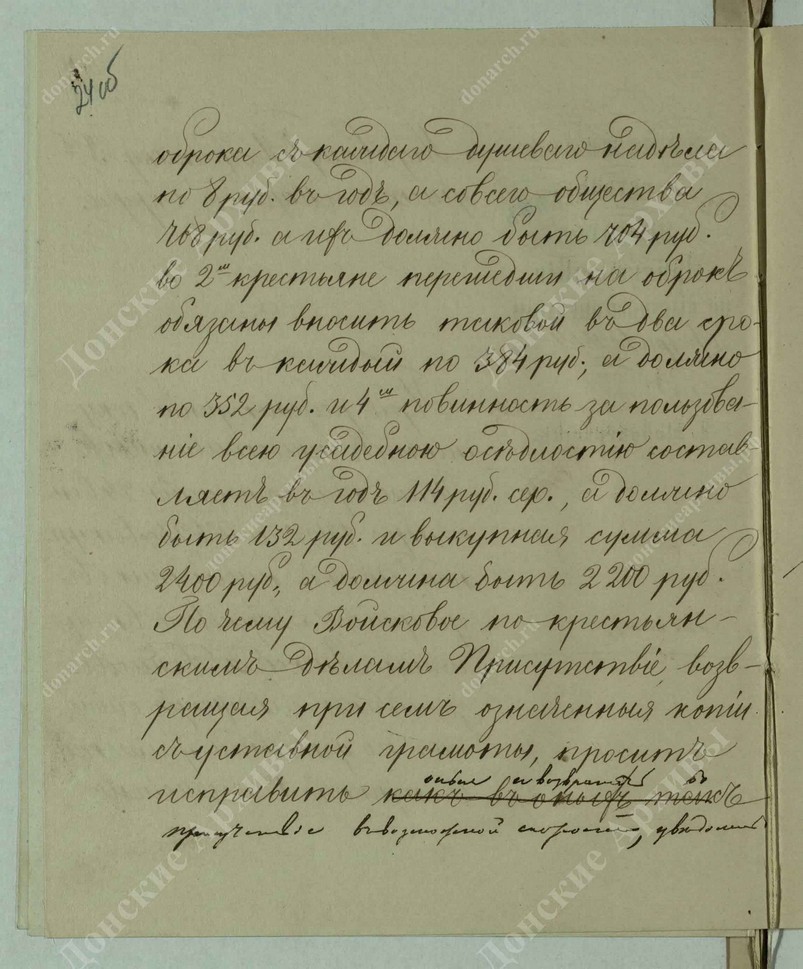 24 об
оброка съ каждаго душеваго надѣла
по 8 руб. въ годъ, а совсего общества
768 руб. а ихъ должно быть 704 руб.
во 2<sup>хъ</sup> крестьяне перешедши на оброкъ
обязаны вносить таковой въ два сро-
ка въ каждый по 384 руб., а должно
по 352 руб. и 4<sup>хъ</sup> повинность за пользова-
ніе всею усадебною осѣдлостію состав-
ляетъ въ годъ 114 руб. сер., а должно
быть 132 руб. и выкупная сумма
2400 руб., а должна быть 2200 руб.
По чему Войсковое по крестьян-
скимъ дѣламъ Присутствіе, возв-
ращая при семъ означенныя копіи
съ уставной грамоты, проситъ
исправить какъ въ оныхъ такъ
въ возможной скорости, уведомив